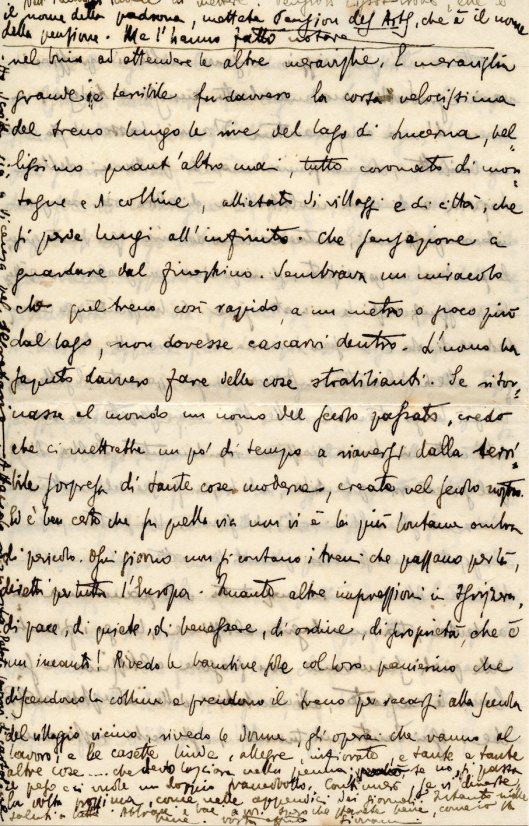 il nome della padrona, mettete Pension des Arts, che è il nome
della pensione. Ma l'hanno fatto notare
nel buio ad attendere le altre meraviglie. E meraviglia
grande e terribile fu davvero la corsa velocissima
del treno lungo le rive del lago di Lucerna, bel-
lissimo quant'altro mai, tutto coronato di mon-
tagne e di colline, allietato di villaggi e di città, che
si perde lungi all'infinito. Che sensazione a
guardare dal finestrino. Sembrava un miracolo
che quel treno così rapido, a un metro o poco più
dal lago, non dovesse cascarvi dentro. L'uomo ha
saputo davvero fare delle cose strabilianti. Se ritor-
nasse al mondo un uomo del secolo passato, credo
che ci metterebbe un po' di tempo a riaversi dalla terri-
bile sorpresa di tante cose moderne, create nel secolo nostro.
Ed è ben certo che su quella via non vi è la più lontana ombra
di pericolo. Ogni giorno non si contano i treni che passano per là,
diretti per tutta l'Europa. Quante altre impressioni in Isvizzera,
di pace, di quiete, di benessere, di ordine di proprietà, che è
un incanto! Rivedo le bambine sole col loro panierino che
discendono la collina e prendono il treno per recarsi alla scuola
del villaggio vicino, rivedo le donne, gli operai che vanno al
lavoro, e le casette linde, allegre, infiorate, e tante e tante
altre cose .... che devo lasciare nella penna, se no, si passa
il peso e ci vuole un doppio francobollo. Continuerò, se vi diverte
la volta prossima, come nelle appendici dei giornali. Intanto mille
saluti a tutti